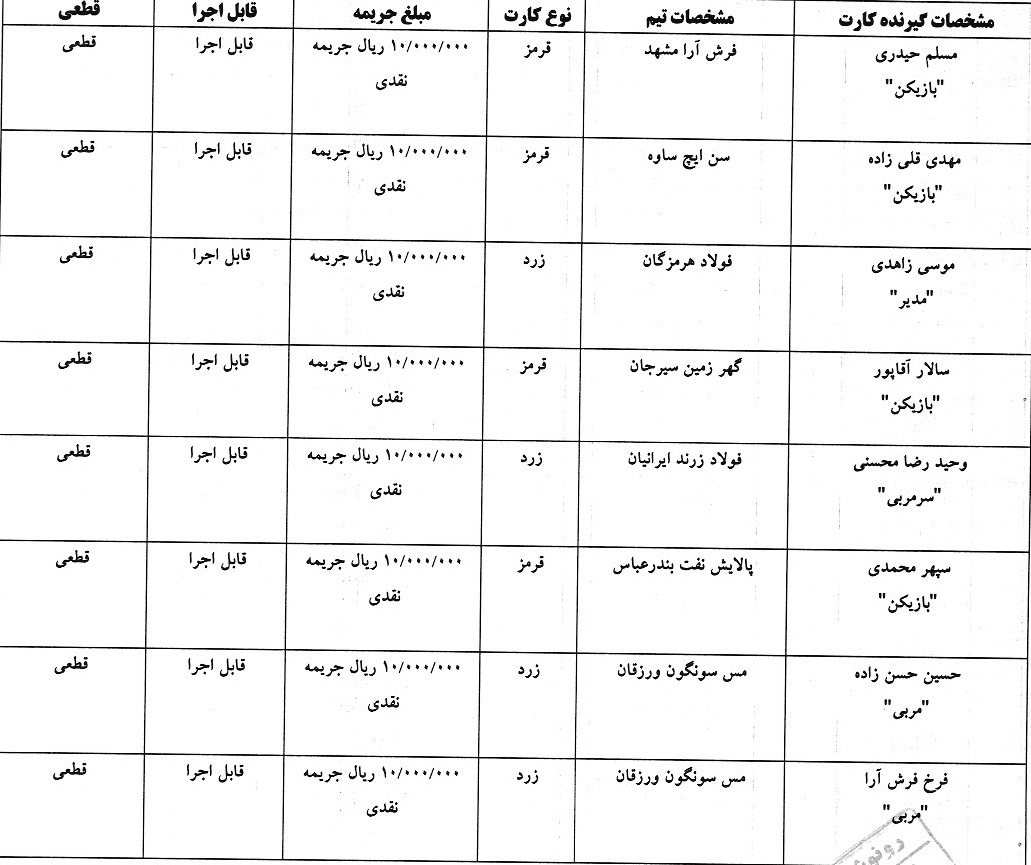 مشخصات گیرنده کارت	مشخصات تیم	نوع کارت	مبلغ جریمه	قابل اجرا	قطعی
مسلم حیدری	فرش آرا مشهد	قرمز	۱۰/۰۰۰/۰۰۰ ریال جریمه	قابل اجرا	قطعی
"بازیکن"	نقدی
مهدی قلی زاده	سن ایچ ساوه	قرمز	۱۰/۰۰۰/۰۰۰ ریال جریمه	قابل اجرا	قطعی
"بازیکن"	نقدی
موسی زاهدی	فولاد هرمزگان	زرد	۱۰/۰۰۰/۰۰۰ ریال جریمه	قابل اجرا	قطعی
"مدیر"	نقدی
سالار آقاپور	گهر زمین سیرجان	قرمز	۱۰/۰۰۰/۰۰۰ ریال جریمه	قابل اجرا	قطعی
"بازیکن"	نقدی
وحید رضا محسنی	فولاد زرند ایرانیان	زرد	۱۰/۰۰۰/۰۰۰ ریال جریمه	قابل اجرا	قطعی
"سرمربی"	نقدی
سپهر محمدی	پالایش نفت بندرعباس	قرمز	۱۰/۰۰۰/۰۰۰ ریال جریمه	قابل اجرا	قطعی
"بازیکن"	نقدی
حسین حسن زاده	مس سونگون ورزقان	زرد	۱۰/۰۰۰/۰۰۰ ریال جریمه	قابل اجرا	قطعی
"مربی"	نقدی
فرخ فرش آرا	مس سونگون ورزقان	زرد	۱۰/۰۰۰/۰۰۰ ریال جریمه	قابل اجرا	قطعی
"مربی"	نقدی